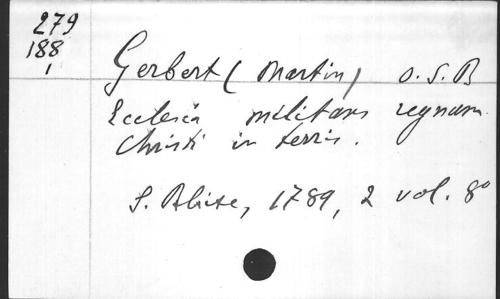 279
188
1
Gerbert (Martin) O.S.B
Ecclesia militans regnum
Christi in terris.
S. Blaise, 1789, 2 vol. 8°